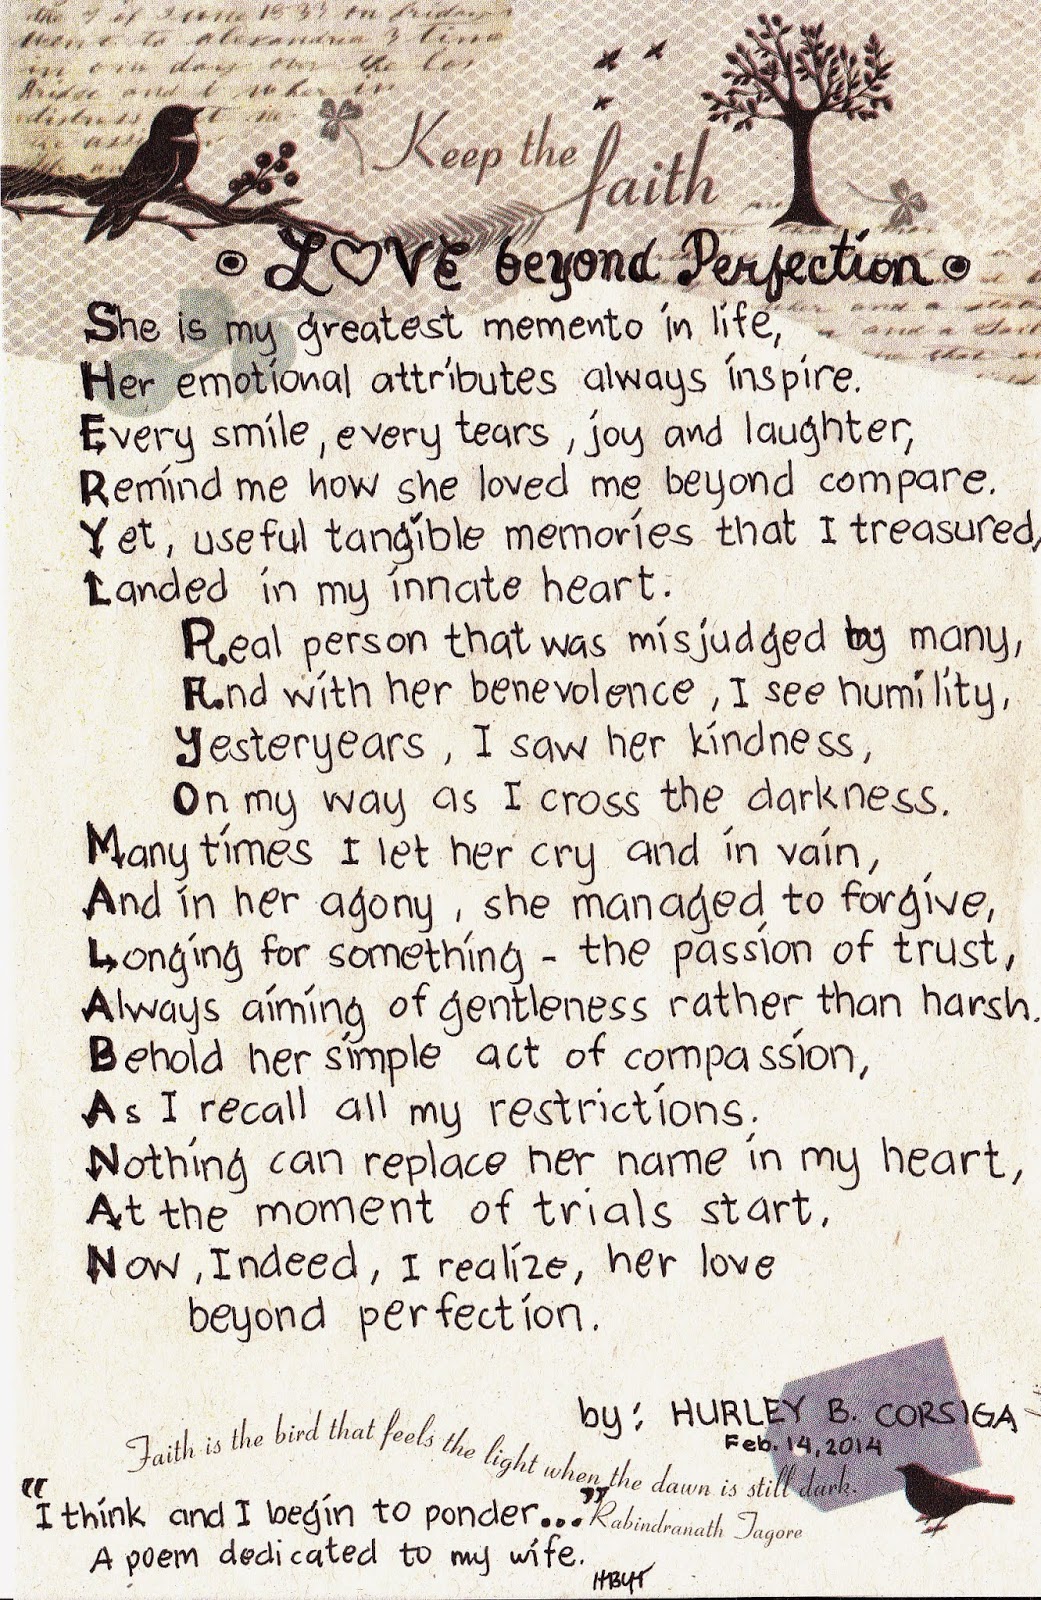 the 7 of June 1833 on friday
went to alexandria 3 time
in our day our the los
Bridge and
distress
the
Keep the
faith
LOVE beyond Perfection
She is my greatest memento in life,
Her emotional attributes always inspire.
Every smile, every tears, joy and laughter,
Remind me how she loved me beyond compare.
Yet, useful tangible memories that I treasured,
Landed in my innate heart.
Real person that was misjudged by many,
And with her benevolence, I see humility,
Yesteryears, I saw her kindness,
On my way as I cross the darkness.
Many times I let her cry and in vain,
And in her agony, she managed to forgive,
Longing for something - the passion of trust,
Always aiming of gentleness rather than harsh.
Behold her simple act of compassion,
As I recall all my restrictions.
Nothing can replace her name in my heart,
At the moment of trials start,
Now, Indeed, I realize, her love
beyond perfection.
by: HURLEY B. CORSIGA
Feb. 14, 2014
Faith is the bird that feels the light when the dawn is still dark.
Rabindranath Tagore
"I think and I begin to ponder..."
A poem dedicated to my wife.